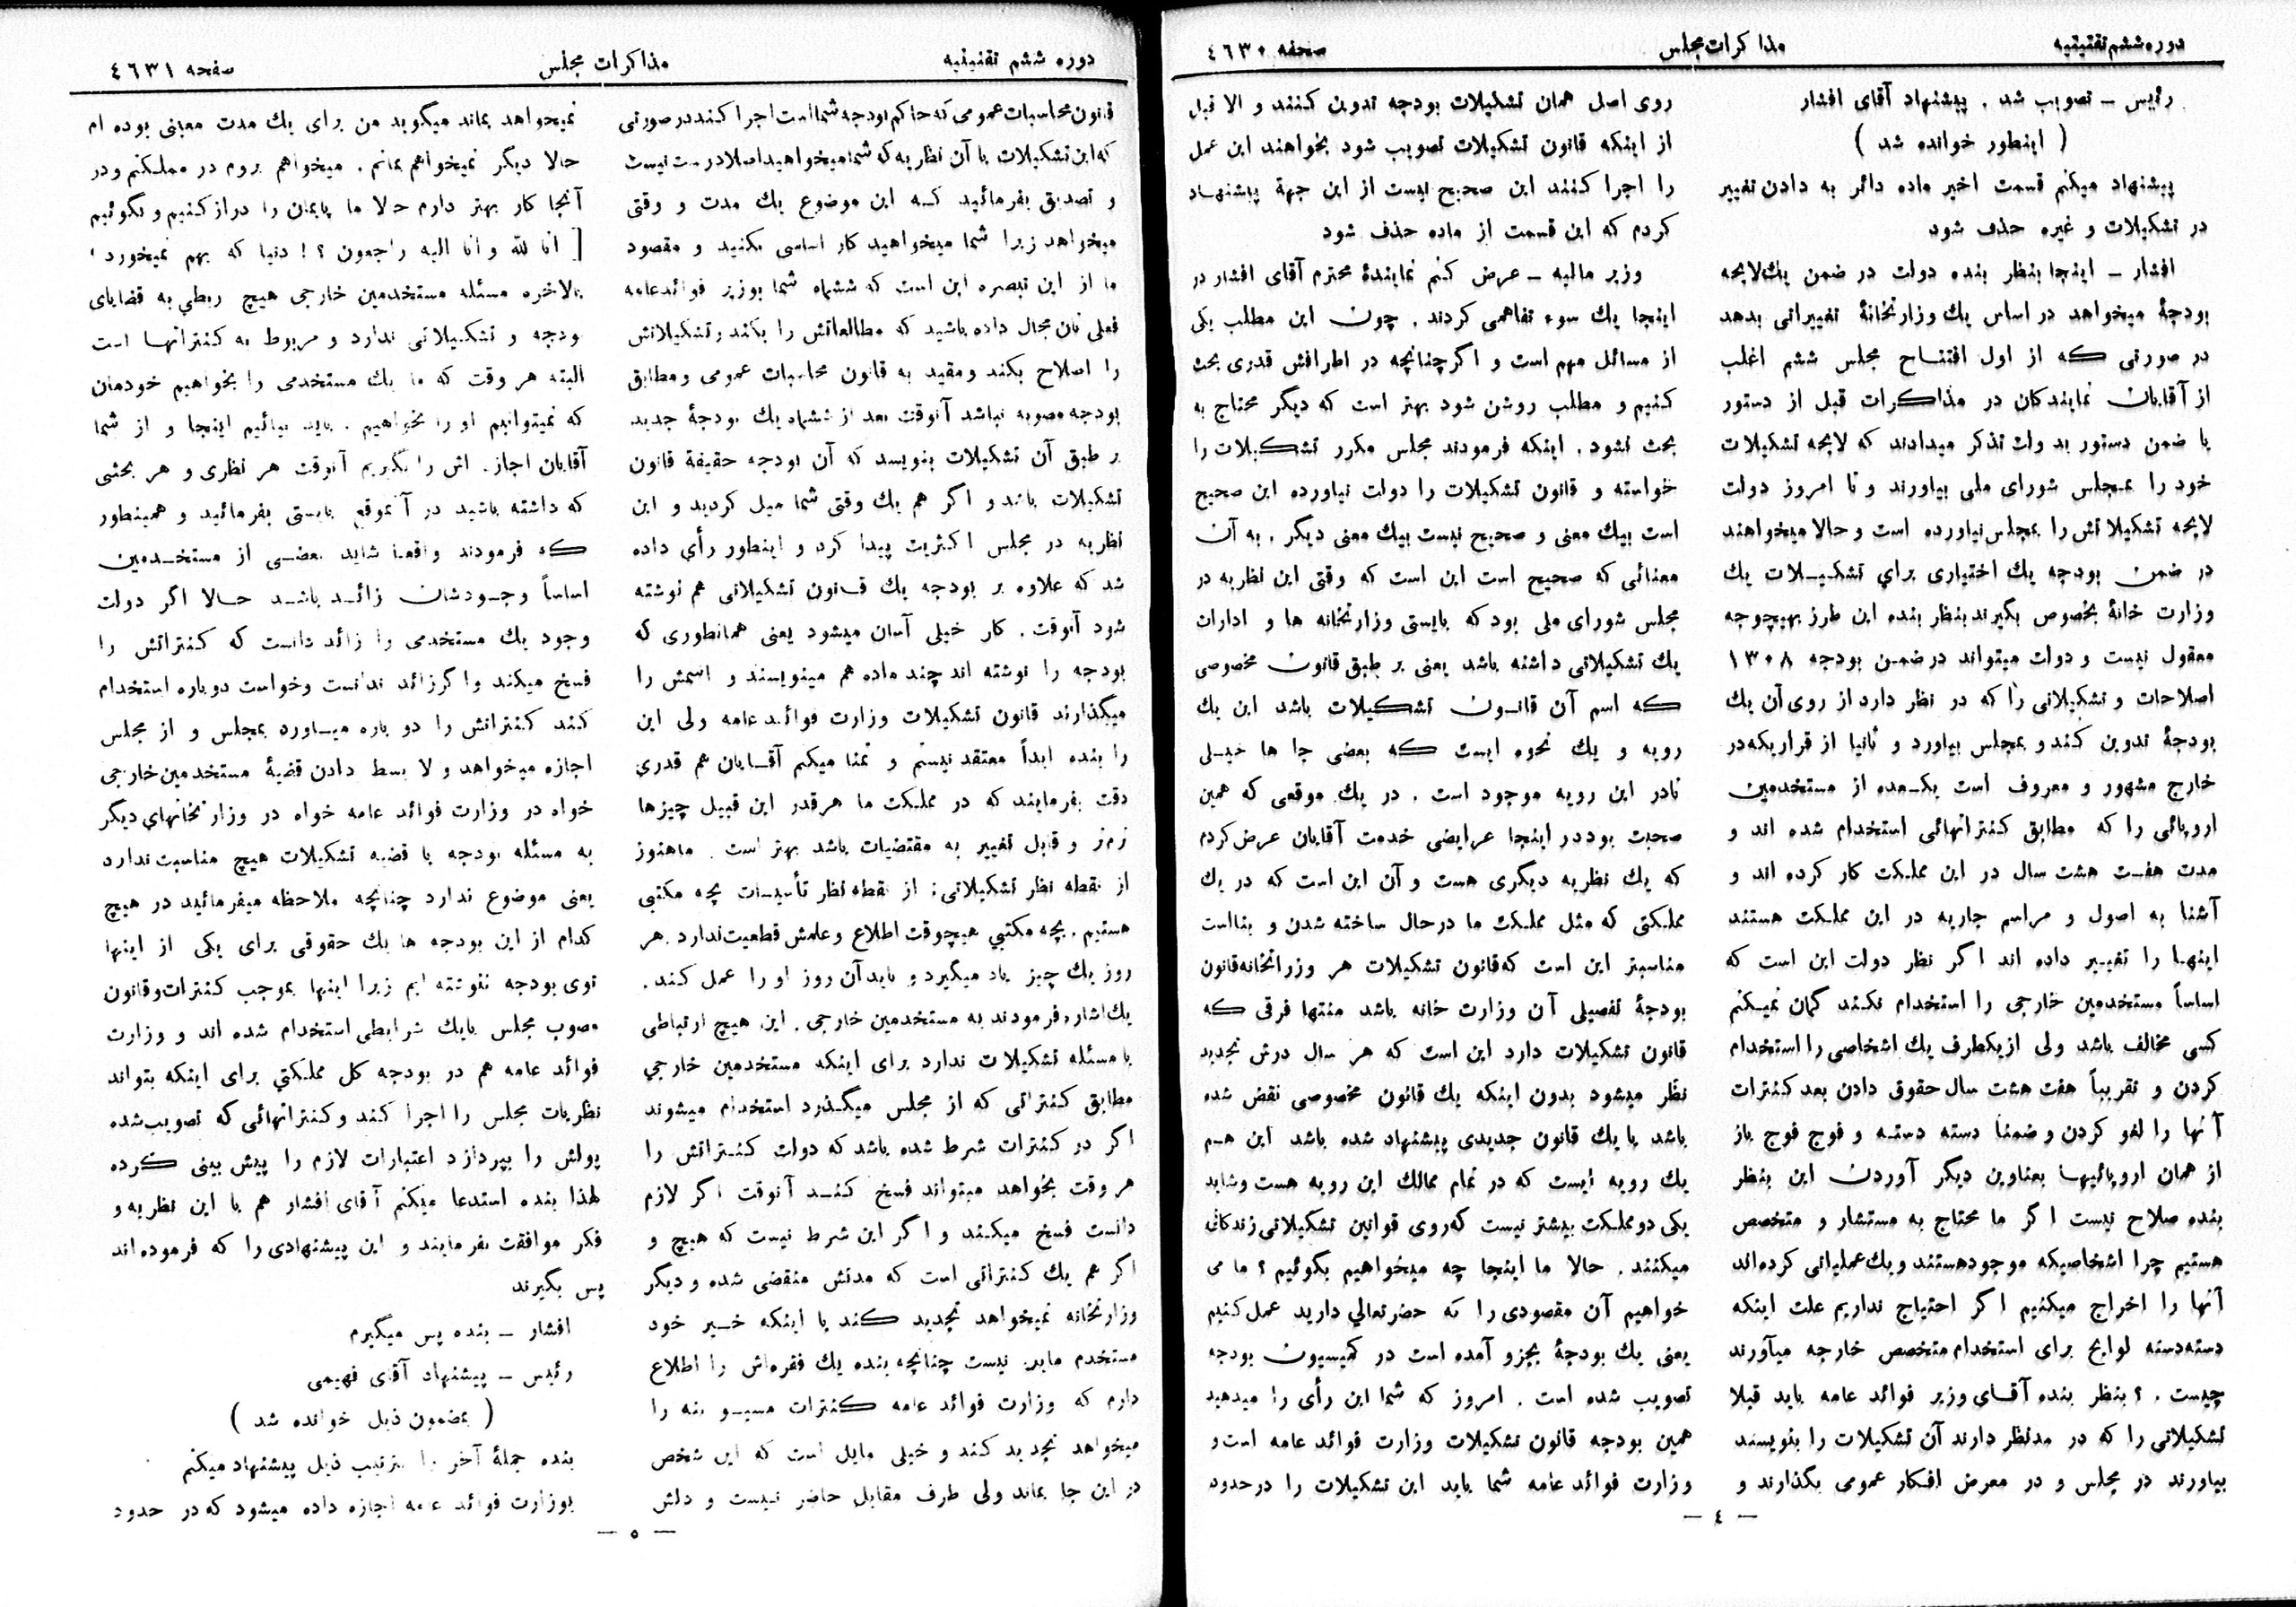 دوره ششم تقنینیه
مذاکرات مجلس
صحفه ٤٦٣٠
رئیس ـ تصویب شد . پیشنهاد آقای افشار
( اینطور خوانده شد )
پیشنهاد میکنم قسمت اخیر ماده دائر به دادن تغییر
در تشکیلات و غیره حذف شود
افشار ـ اینجا بنظر بنده دولت در ضمن یك لایحه
بودجۀ میخواهد در اساس یك وزارتخانۀ تغییراتی بدهد
در صورتی که از اول افتتاح مجلس ششم اغلب
از آقایان نمایندکان در مذاکرات قبل از دستور
یا ضمن دستور بدولت تذکر میدادند که لایحه تشکیلات
خود را بمجلس شورای ملی بیاورند و تا امروز دولت
لایحه تشکیلاتش را بمجلس نیاورده است و حالا میخواهند
در ضمن بودجه یك اختیاری براي تشکیلات یك
وزارت خانۀ بخصوص بگیرند بنظر بنده این طرز بهیچوجه
معقول نیست و دولت میتواند در ضمن بودجه ١٣٠٨
اصلاحات و تشکیلاتی را که در نظر دارد از روی آن یك
بودجۀ تدوین کند و بمجلس بیاورد و ثانیا از قراریکه در
خارج مشهور و معروف است یکعده از مستخدمین
اروپائی را که مطابق کنتراتهائی استخدام شده اند و
مدت هفت هشت سال در این مملکت کار کرده اند و
آشنا به اصول و مراسم جاریه در این مملکت هستند
اینها را تغییر داده اند اگر نظر دولت این است که
اساساً مستخدمین خارجی را استخدام نکند گمان نمیکنم
کسی مخالف باشد ولی ازیکطرف یك اشخاصی را استخدام
کردن و تقریباً هفت هشت سال حقوق دادن بعد کنترات
آنها را لغو کردن و ضمناً دسته دسته و فوج فوج باز
از همان اروپائیها بعناوین دیگر آوردن این بنظر
بنده صلاح نیست اگر ما محتاج به مستشار و متخصص
هستیم چرا اشخاصیکه موجود هستند و یك عملیاتی کرده اند
آنها را اخراج میکنیم اگر احتیاج نداریم علت اینکه
دسته دسته لوایح برای استخدام متخصص خارجه میآورند
چیست . ؟ بنظر بنده آقای وزیر فوائد عامه باید قبلا
تشکیلاتی را که در مدنظر دارند آن تشکیلات را بنویسند
بیاورند در مجلس و در معرض افکار عمومی بگذارند و
روی اصل همان تشکیلات بودجه تدوین کنند و الا قبل
از اینکه قانون تشکیلات تصویب شود بخواهند این عمل
را اجرا کنند این صحیح نیست از این جهة پیشنهاد
کردم که این قسمت از ماده حذف شود
وزیر مالیه ـ عرض کنم نمایندۀ محترم آقای افشار در
اینجا یك سوء تفاهمی کردند . چون این مطلب یکی
از مسائل مهم است و اگر چنانچه در اطرافش قدری بحث
کنیم و مطلب روشن شود بهتر است که دیگر محتاج به
بحث نشود . اینکه فرمودند مجلس مکرر تشکیلات را
خواسته و قانون تشکیلات را دولت نیاورده این صحیح
است بیك معنی و صحیح نیست بیك معنی دیگر . به آن
معنائی که صحیح است این است که وقتی این نظریه در
مجلس شورای ملی بود که بایستی وزارتخانه ها و ادارات
یك تشکیلاتی داشته باشد یعنی بر طبق قانون مخصوصی
که اسم آن قانون تشکیلات باشد این یك
رویه و یك نحوه ایست که بعضی جا ها خیلی
نادر این رویه موجود است . در یك موقعی که همین
صحبت بود در اینجا عرایضی خدمت آقایان عرض کردم
که یك نظریه دیگری هست و آن این است که در یك
مملکتی که مثل مملکت ما در حال ساخته شدن و بنااست
مناسبتر این است که قانون تشکیلات هر وزراتخانه قانون
بودجۀ تفصیلی آن وزارت خانه باشد منتها فرقی که
قانون تشکیلات دارد این است که هر سال درش تجدید
نظر میشود بدون اینکه یك قانون مخصوصی نقض شده
باشد یا یك قانون جدیدی پیشنهاد شده باشد این هم
یك رویه ایست که در تمام ممالك این رویه هست و شاید
یکی دو مملکت بیشتر نیست که روی قوانین تشکیلاتی زندکانی
میکنند . حالا ما اینجا چه میخواهیم بگوئیم ؟ ما می
خواهیم آن مقصودی را که حضرتعالی دارید عمل کنیم
یعنی یك بودجۀ بجزو آمده است در کمیسیون بودجه
تصویب شده است . امروز که شما این رأی را میدهید
همین بودجه قانون تشکیلات وزارت فوائد عامه است و
وزارت فوائد عامه شما باید این تشکیلات را در حدود
ـ ٤ ـ
دوره ششم تقنینیه
مذاکرات مجلس
صفحه ٤٦٣١
قانون محاسبات عمومی که حاکم بودجه شما است اجرا کند در صورتی
که این تشکیلات با آن نظریه که شما میخواهید اصلا درست نیست
و تصدیق بفرمائید که این موضوع یك مدت و وقتی
میخواهد زیرا شما میخواهید کار اساسی بکنید و مقصود
ما از این تبصره این است که ششماه شما بوزیر فوائد عامه
فعلی تان مجال داده باشید که مطالعاتش را بکند و تشکیلاتش
را اصلاح بکند و مقید به قانون محاسبات عمومی و مطابق
بودجه مصوبه نباشد آنوقت بعد از ششماه یك بودجۀ جدید
بر طبق آن تشکیلات بنویسد که آن بودجه حقیقة قانون
تشکیلات باشد و اگر هم یك وقتی شما میل کردید و این
نظریه در مجلس اکثریت پیدا کرد و اینطور رأی داده
شد که علاوه بر بودجه یك قانون تشکیلاتی هم نوشته
شود آنوقت . کار خیلی آسان میشود یعنی همانطوری که
بودجه را نوشته اند چند ماده هم مینویسند و اسمش را
میگذارند قانون تشکیلات وزارت فوائد عامه ولی این
را بنده ابداً معتقد نیستم و تمنا میکنم آقایان هم قدری
دقت بفرمایند که در مملکت ما هر قدر این قبیل چیزها
و قابل تغییر به مقتضیات باشد بهتر است . ما هنوز
از نقطه نظر تشکیلاتی ؛ از نقطه نظر تأسیسات بچه مکتبی
هستیم . بچه مکتبی هیچوقت اطلاع و علمش قطعیت ندارد . هر
روز یك چیز یاد میگیرد و باید آن روز او را عمل کند .
یك اشاره فرمودند به مستخدمین خارجی . این هیچ ارتباطی
با مسئله تشکیلات ندارد برای اینکه مستخدمین خارجي
مطابق کنتراتی که از مجلس میگذرد استخدام میشوند
اگر در کنترات شرط شده باشد که دولت کنتراتش را
هر وقت بخواهد میتواند فسخ کند آنوقت اگر لازم
دانست فسخ میکند و اگر این شرط نیست که هیچ و
اگر هم یك کنتراتی است که مدتش منقضی شده و دیگر
وزارتخانه نمیخواهد تجدید کند یا اینکه خیر خود
مستخدم مایل نیست چنانچه بنده یك فقره اش را اطلاع
دارم که وزارت فوائد عامه کنترات مسیو را
میخواهد تجدید کند و خیلی مایل است که این شخص
در این جا بماند ولی طرف مقابل حاضر نیست و دلش
نمیخواهد بماند میگوید من برای یك مدت معینی بوده ام
حالا دیگر نمیخواهم بمانم . میخواهم بروم در مملکتم و در
آنجا کار بهتر دارم حالا ما پایمان را دراز کنیم و بگوئیم
[ انا لله و انا الیه راجعون ؟ ! دنیا که بهم نمیخورد
بالاخره مسئله مستخدمین خارجی هیچ ربطی به قضایای
بودجه و تشکیلاتی ندارد و مربوط به کنتراتها است
البته هر وقت که ما یك مستخدمی را بخواهیم خودمان
که نمیتوانیم او را بخواهیم . باید بیائیم اینجا و از شما
آقایان اجازه اش را بگیریم آنوقت هر نظری و هر بحثی
که داشته باشید در آنموقع بایستی بفرمائید و همینطور
که فرمودند واقعاً شاید بعضی از مستخدمین
اساساً وجودشان زائد باشد حالا اگر دولت
وجود یك مستخدمی را زائد دانست که کنتراتش را
فسخ میکند و اگر زائد ندانست و خواست دوباره استخدام
کند کنتراتش را دو باره میآورد بمجلس و از مجلس
اجازه میخواهد و لا بسط دادن قضیۀ مستخدمین خارجی
خواه در وزارت فوائد عامه خواه در وزارتخانهاي دیگر
به مسئله بودجه یا قضیه تشکیلات هیچ مناسبت ندارد
یعنی موضوع ندارد چنانچه ملاحظه میفرمائید در هیچ
کدام از این بودجه ها یك حقوقی برای یکی از اینها
توی بودجه ننوشته ایم زیرا اینها بموجب کنترات و قانون
مصوب مجلس بایك شرایطی استخدام شده اند و وزارت
فوائد عامه هم در بودجه کل مملکتی برای اینکه بتواند
نظریات مجلس را اجرا کند و کنتراتهائی که تصویب شده
پولش را بپردازد اعتبارات لازم را پیش بینی کرده
لهذا بنده استدعا میکنم آقای افشار هم با این نظریه و
فکر موافقت بفرمایند و این پیشنهادی را که فرموده اند
پس بگیرند
افشار ـ بنده پس میگیرم
رئیس ـ پیشنهاد آقای فهیمی
( بمضمون ذیل خوانده شد )
بنده جملۀ آخر را بترتیب ذیل پیشنهاد میکنم
بوزارت فوائد عامه اجازه داده میشود که در حدود
ـ ٥ ـ